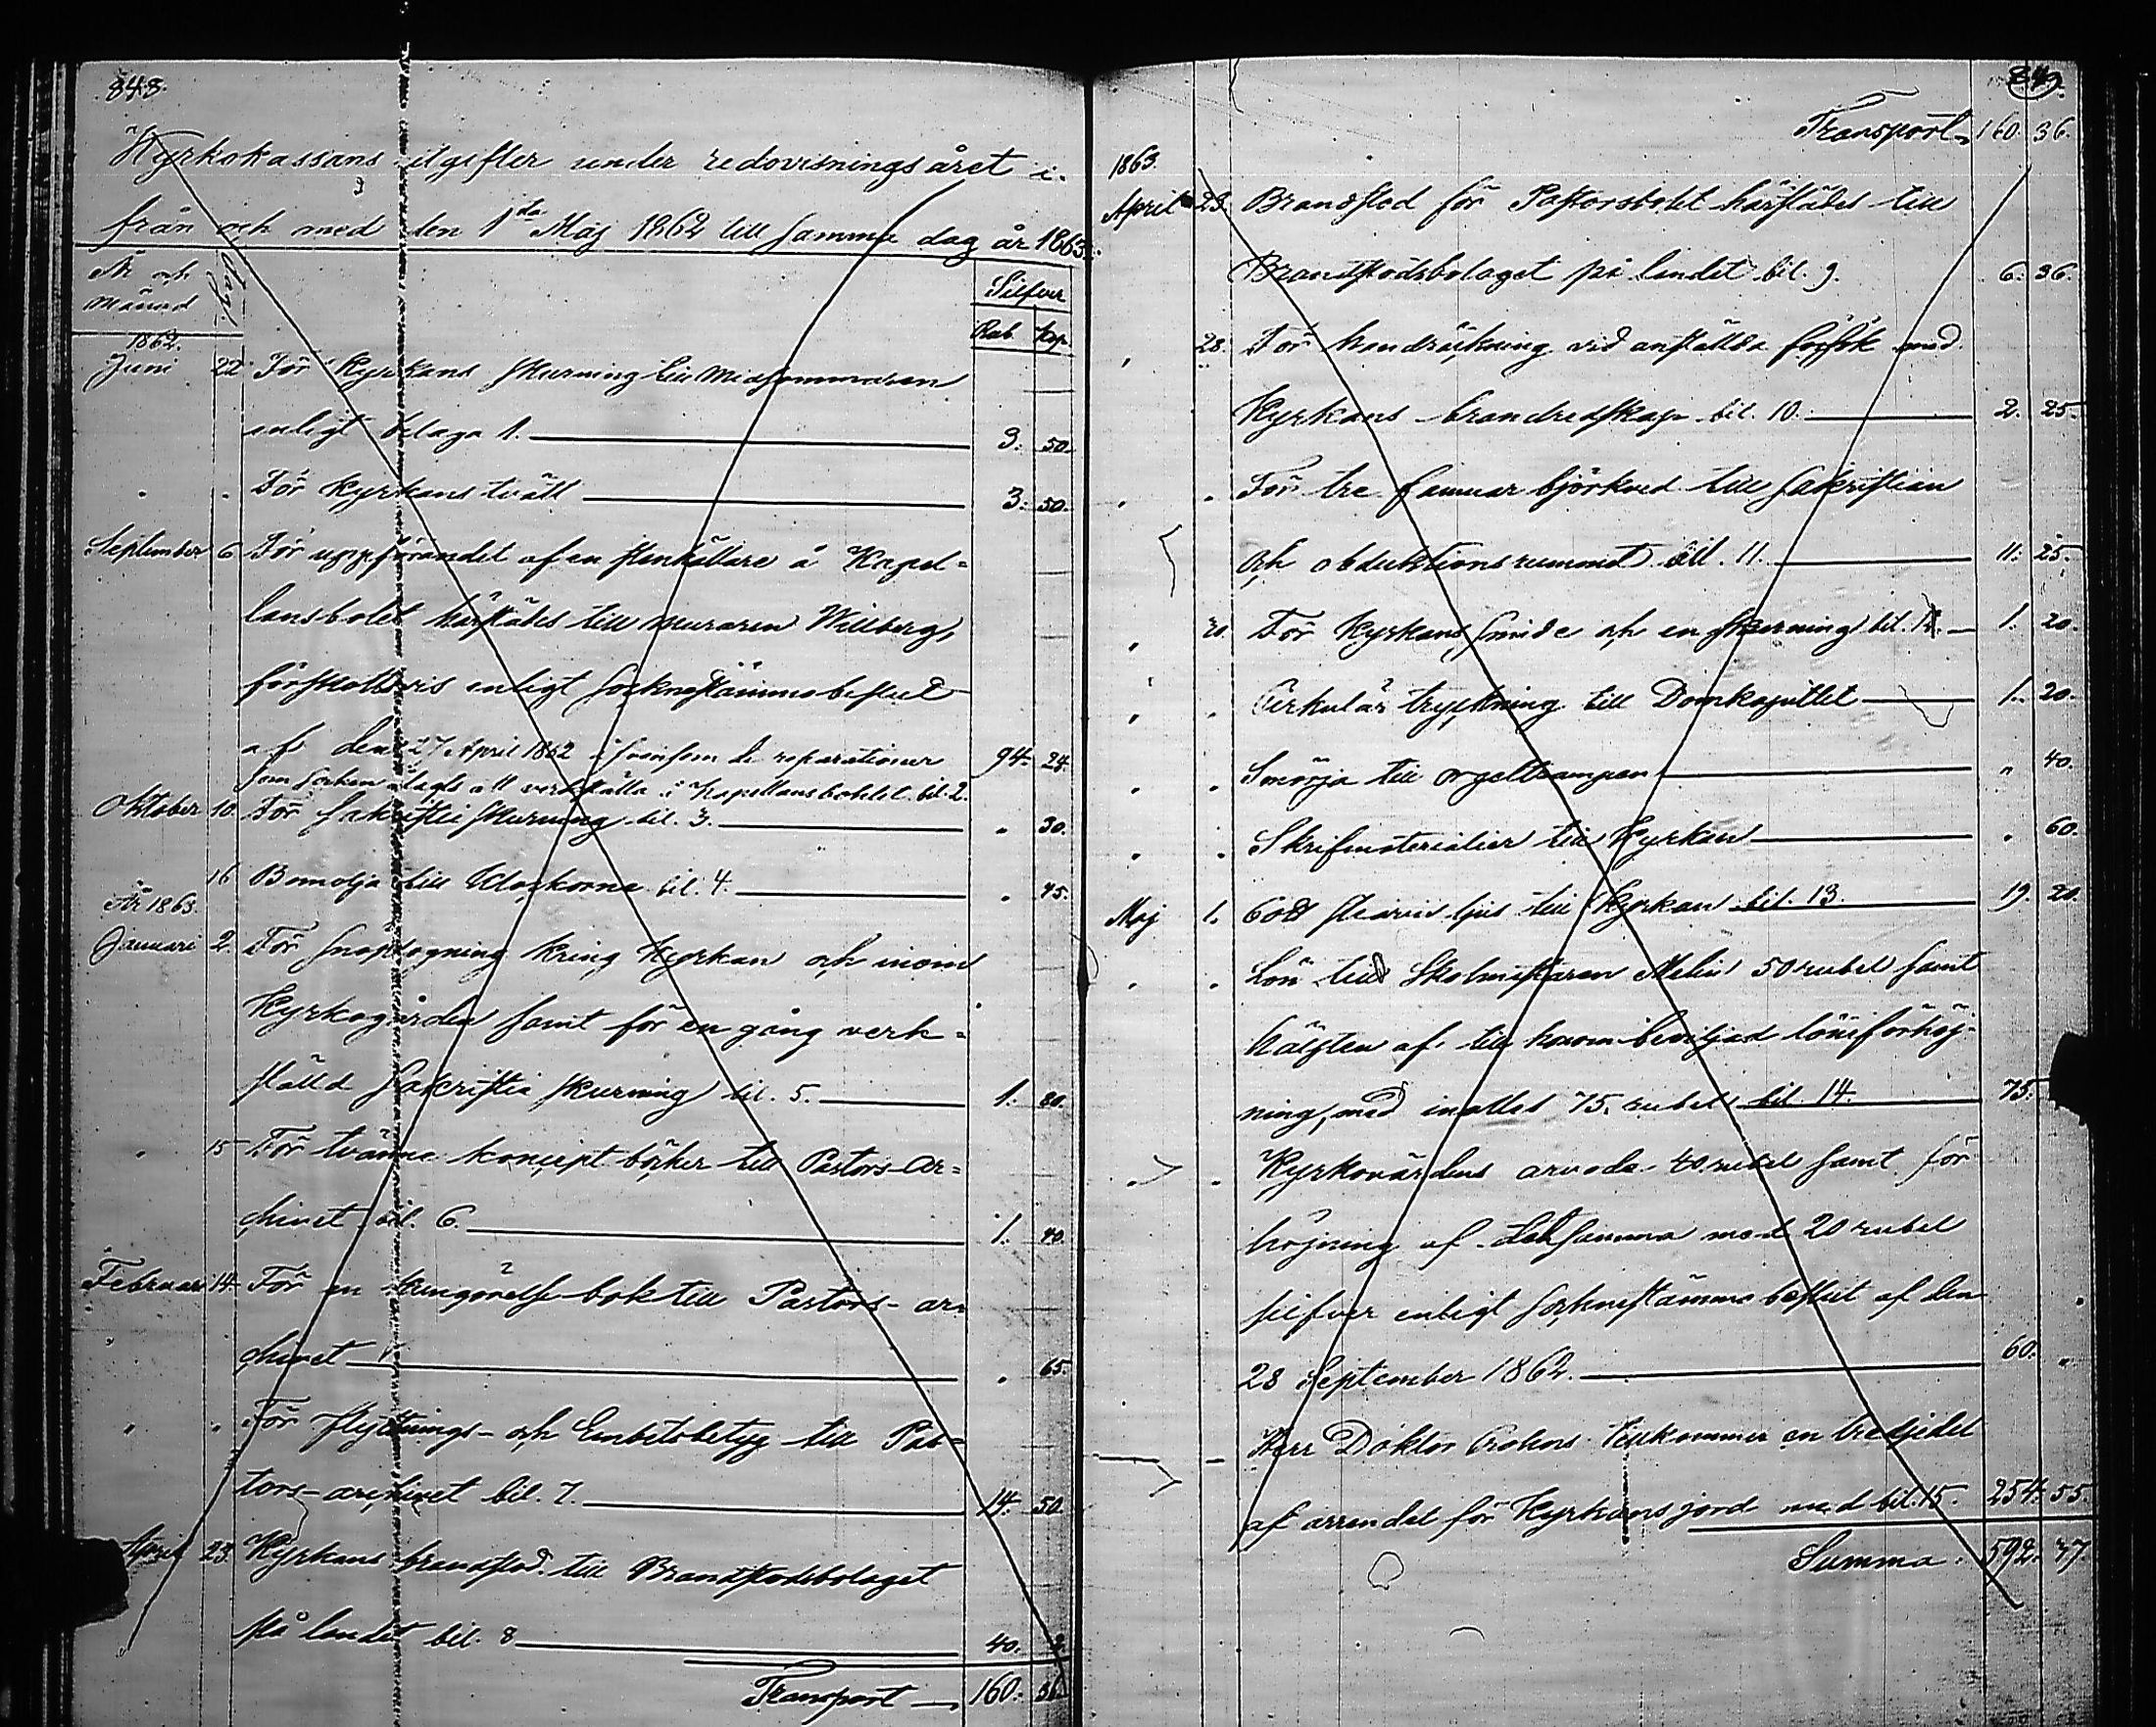 848.
Kyrkokassans utgifter under redovisningsåret i-
från och med den 1sta Maj 1862 till samma dag år 1863.
År och Månad Dag. Silfver
Rub. Kop.
1862.
Juni 22 För Kyrkans skurning till Midsommaren
enligt bilaga 1. 3. 50.
" " För kyrkans tvätt 3. 50.
September 6 För uppförandet af en stenkällare å Kapel=
lansbolet härstädes till muraren Willberg,
förskottsvis enligt sockenstämmobeslut
af den 27 April 1862 äfvensom de reparationer 94. 24.
som socken ålagts att verkställa i Kapellansbolet bil. 2.
Oktober 10. För sakristie skurning bil. 3. " 30.
16 Bomolja till Klockorna bil. 4. " 45.
År 1863.
Januari 2. För snöplogning kring Kyrkan och inom
Kyrkogården samt för en gång verk=
ställd sakristie skurning bil. 5. 1. 80.
" 15 För tvänne koncept böcker till Pastors-Ar=
chivet bil. 6. 1. 40.
Februari 14. För en kungörelse bok till Pastors-ar=
chivet " 65.
" " För flyttnings- och Embetsbetyg till Pas=
tors-archivet bil. 7. 14. 50.
April 23. Kyrkans brandstod till Brandstodsbolaget
på landet bil. 8 40. 2.
Transport 160. 36.
849
Transport 160. 36.
1863.
April 23. Brandstod för Pastorsbolet härstädes till
Brandstodsbolaget på landet bil. 9. 6. 36.
" 28. För handräckning vid anställda försök med
Kyrkans brandredskap bil. 10. 2. 25.
" " För tre famnar björkved till sakristian
och obduktionsrummet bil. 11. 11. 25.
" 30. För Kyrkans smide och en skurning bil. 12. 1. 20.
" " Cirkulär tryckning till Domkapitlet 1. 20.
" " Smörja till orgeltrampen " 40.
" " Skrifmaterialier till Kyrkan " 60.
Maj 1. 60 ℔ stearin ljus till Kyrkan bil. 13. 19. 20.
" " Lön till Skolmästaren Melin 50 rubel samt
hälften af till honom beviljad löneförhöj-
ning, med inalles 75. rubel bil. 14. 75.
" " Kyrkovärdens arvode 40 rubel samt för
höjning af detsamma med 20 rubel
silfver enligt sockenstämmo beslut af den
28 September 1862. 60. "
Herr Doktor Crohns tillkommer en tredjedel
af arrendet för Kyrkans jord med bil. 15. 254. 55.
Summa 592. 37.